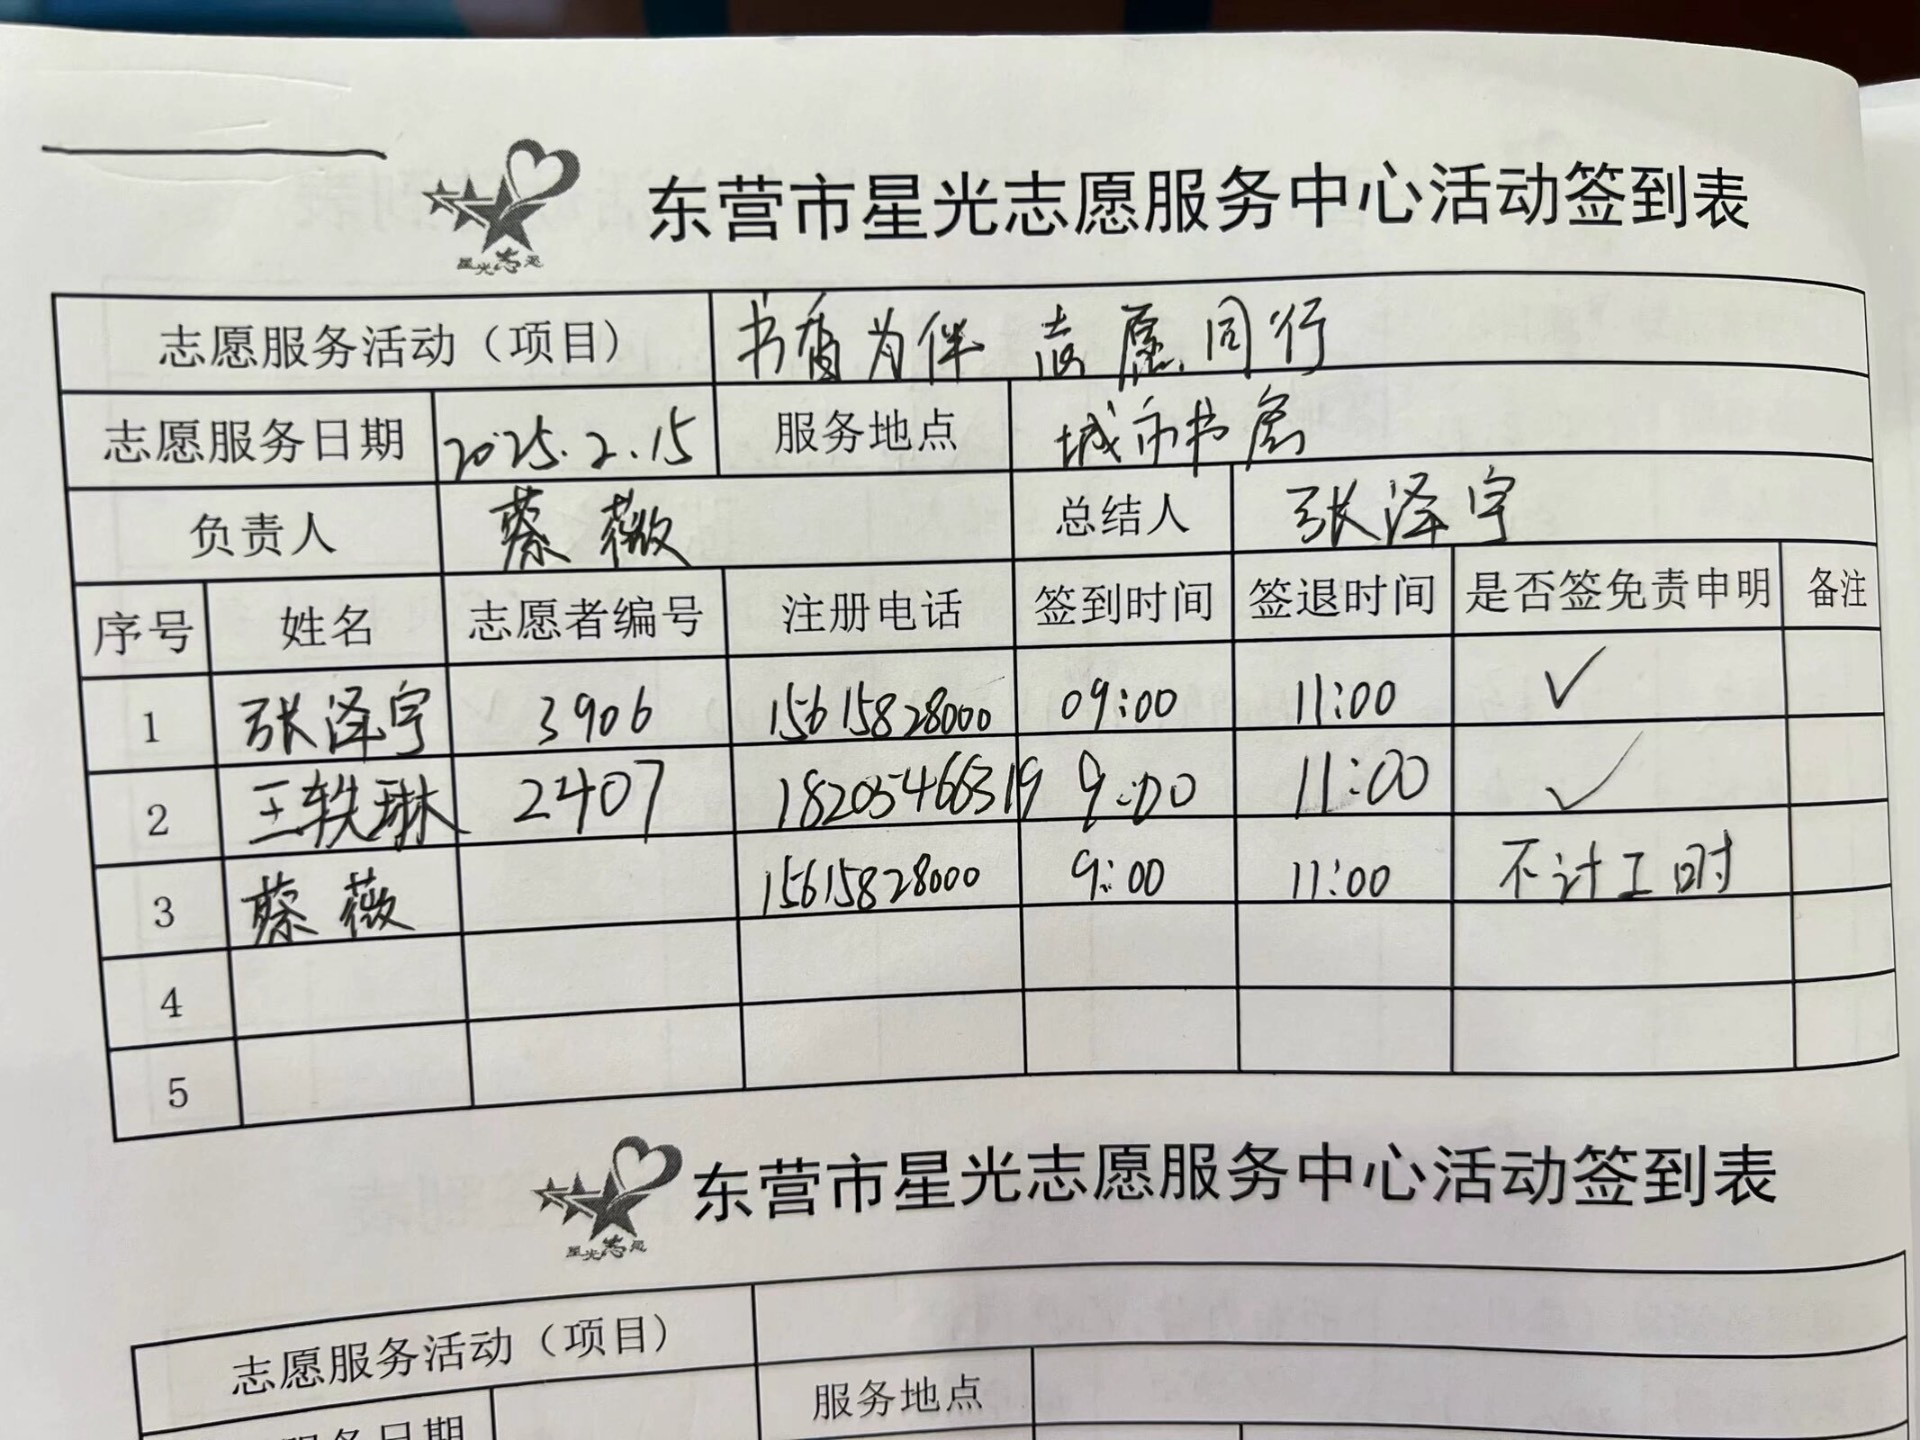 东营市星光志愿服务中心活动签到表
星光志愿
志愿服务活动（项目） 书香为伴 志愿同行
志愿服务日期 2025.2.15 服务地点 城市书房
负责人 蔡薇 总结人 张泽宇
序号 姓名 志愿者编号 注册电话 签到时间 签退时间 是否签免责申明 备注
1 张泽宇 3906 15615828000 09:00 11:00 ✓
2 王轶琳 2407 18205466319 9:00 11:00 ✓
3 蔡薇 15615828000 9:00 11:00 不计工时
4
5
东营市星光志愿服务中心活动签到表
星光志愿
志愿服务活动（项目）
服务日期 服务地点